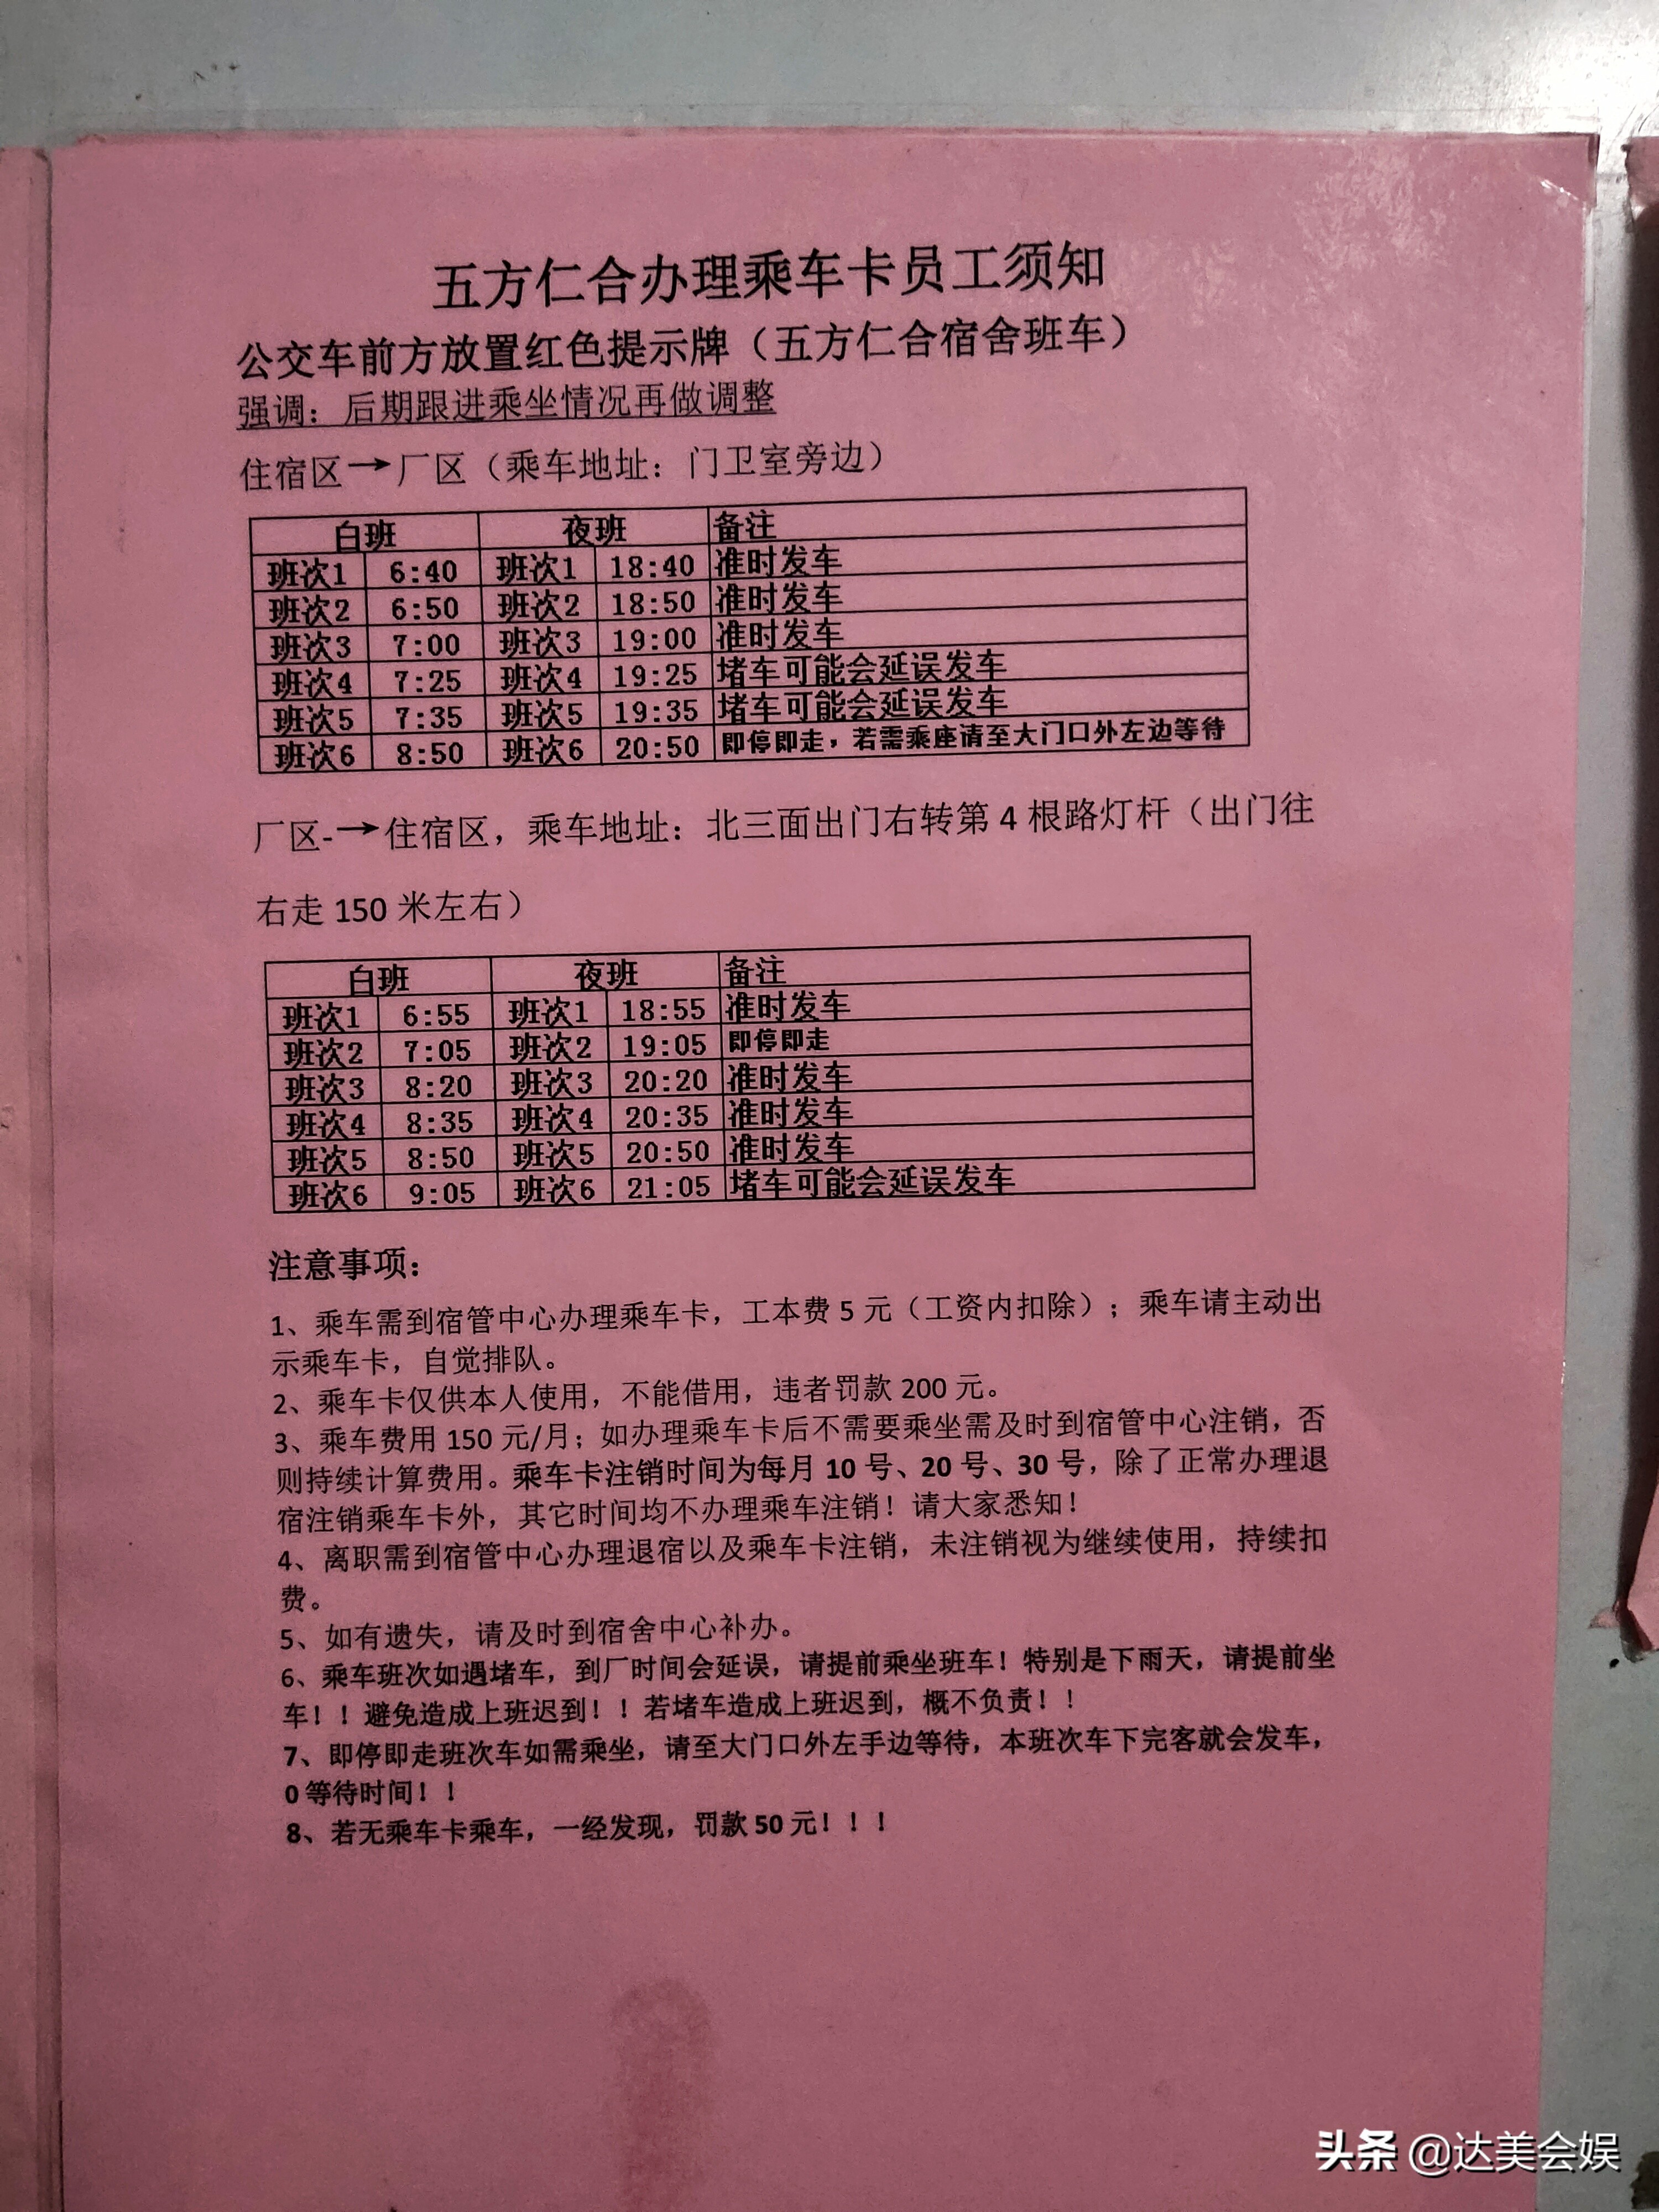 五方仁合办理乘车卡员工须知
公交车前方放置红色提示牌（五方仁合宿舍班车）
强调：后期跟进乘坐情况再做调整
住宿区→厂区（乘车地址：门卫室旁边）
白班 夜班 备注
班次1 6:40 班次1 18:40 准时发车
班次2 6:50 班次2 18:50 准时发车
班次3 7:00 班次3 19:00 准时发车
班次4 7:25 班次4 19:25 堵车可能会延误发车
班次5 7:35 班次5 19:35 堵车可能会延误发车
班次6 8:50 班次6 20:50 即停即走，若需乘座请至大门口外左边等待
厂区-→住宿区，乘车地址：北三面出门右转第4根路灯杆（出门往
右走150米左右）
白班 夜班 备注
班次1 6:55 班次1 18:55 准时发车
班次2 7:05 班次2 19:05 即停即走
班次3 8:20 班次3 20:20 准时发车
班次4 8:35 班次4 20:35 准时发车
班次5 8:50 班次5 20:50 准时发车
班次6 9:05 班次6 21:05 堵车可能会延误发车
注意事项：
1、乘车需到宿管中心办理乘车卡，工本费5元（工资内扣除）；乘车请主动出
示乘车卡，自觉排队。
2、乘车卡仅供本人使用，不能借用，违者罚款200元。
3、乘车费用150元/月；如办理乘车卡后不需要乘坐需及时到宿管中心注销，否
则持续计算费用。乘车卡注销时间为每月10号、20号、30号，除了正常办理退
宿注销乘车卡外，其它时间均不办理乘车注销！请大家悉知！
4、离职需到宿管中心办理退宿以及乘车卡注销，未注销视为继续使用，持续扣
费。
5、如有遗失，请及时到宿舍中心补办。
6、乘车班次如遇堵车，到厂时间会延误，请提前乘坐班车！特别是下雨天，请提前坐
车！！避免造成上班迟到！！若堵车造成上班迟到，概不负责！！
7、即停即走班次车如需乘坐，请至大门口外左手边等待，本班次车下完客就会发车，
0等待时间！！
8、若无乘车卡乘车，一经发现，罚款50元！！！
头条 @达美会娱